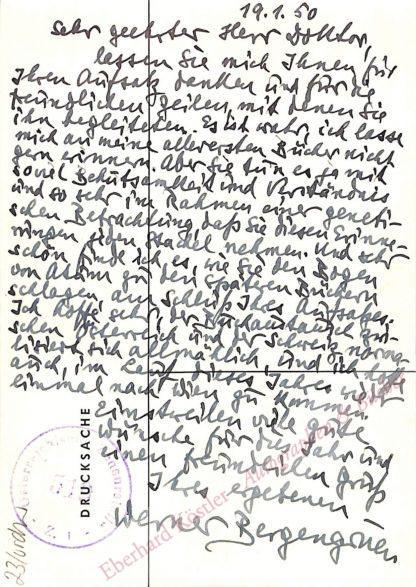 19.1.50
Sehr geehrter Herr Doktor,
lassen Sie mich Ihnen für
Ihren Aufsatz danken und für die
freundlichen Zeilen, mit denen Sie
ihn begleiteten. Es ist wahr, ich lasse
mich an meine allerersten Bücher nicht
gern erinnern. Aber Sie tun es ja mit
soviel Behutsamkeit und Verständnis
und so sehr im Rahmen einer geneti-
schen Betrachtung, daß Sie diesen Erinne-
rungen jeden Stachel nehmen. Und sehr
schön finde ich es, wie Sie den Bogen
von zu den späteren Büchern
schlagen, am Schluß Ihres Aufsatzes.
Ich hoffe sehr, der Buchaustausch zwi-
schen Österreich und der Schweiz norma-
lisiert sich allmählich, und ich hoffe
auch, im Lauf dieses Jahres wieder
einmal nach Wien zu kommen.
Einstweilen viele gute
Wünsche für das Jahr und
einen freundlichen Gruß
Ihres ergebenen
Werner Bergengruen
DRUCKSACHE
Eberhard Köstler